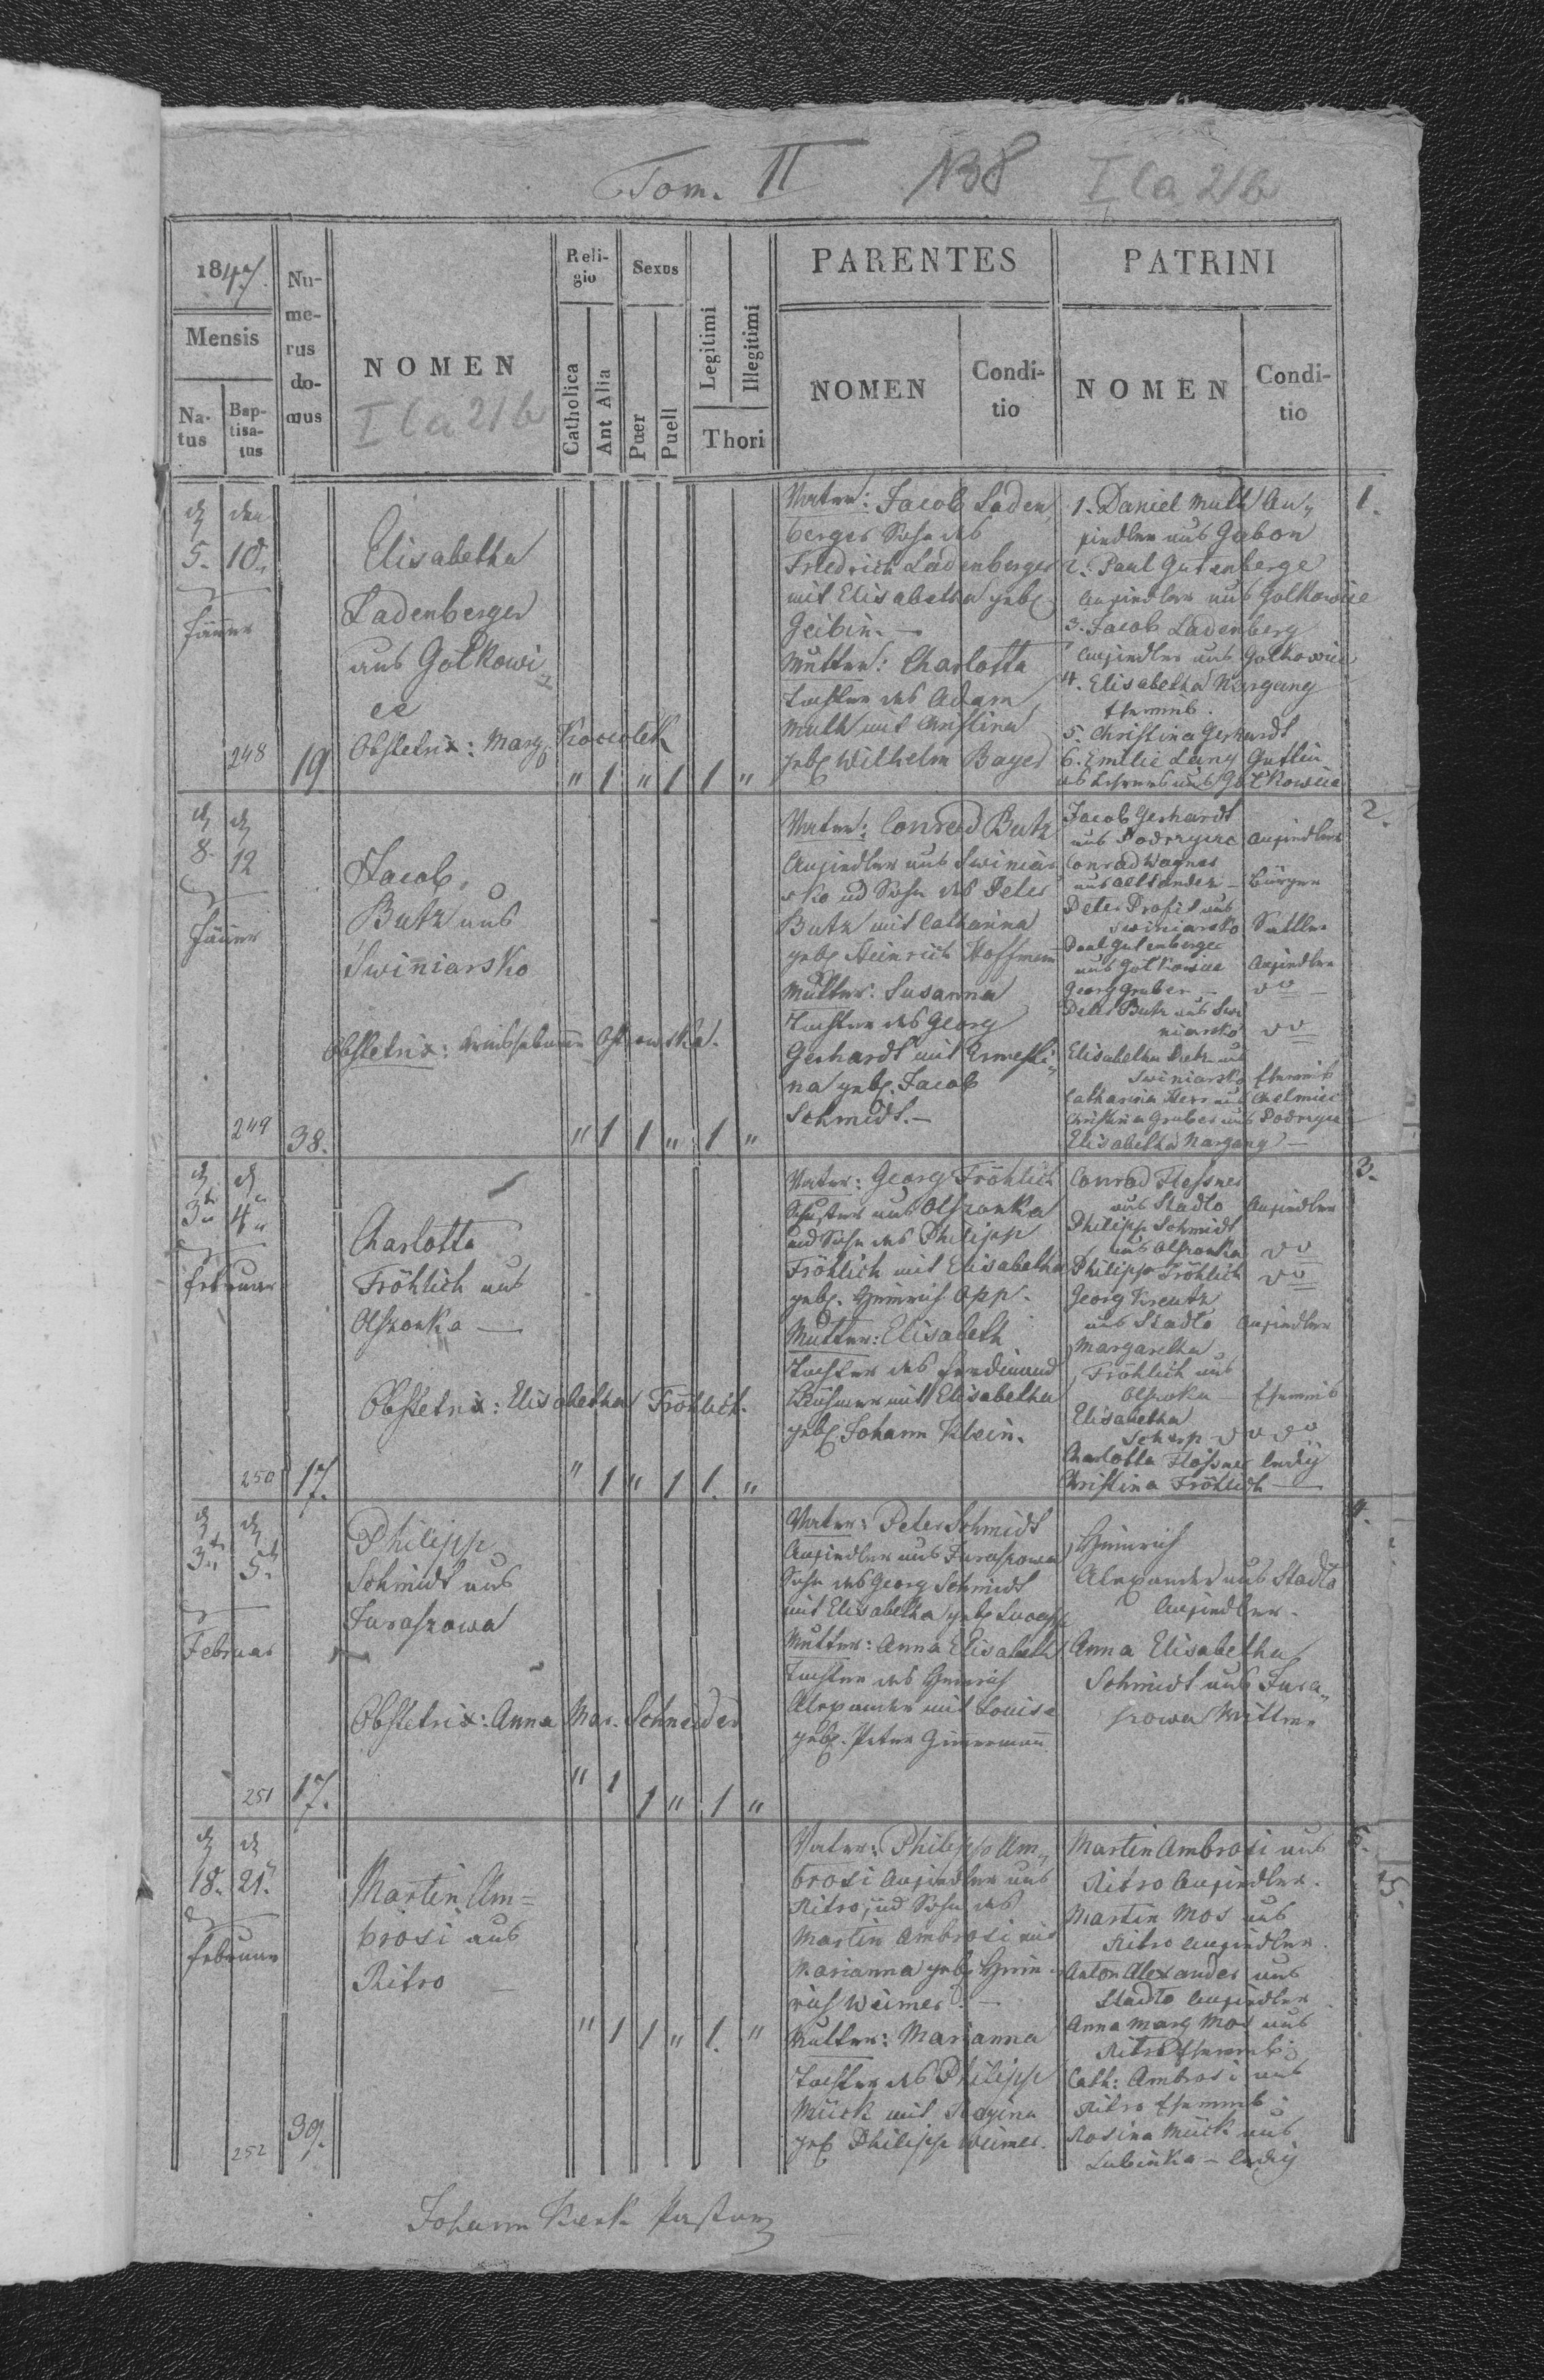 Tom. II
N38
I la 21b
1847.
Mensis
Na-
tus
Bap-
tisa-
tus
Nu-
me-
rus
do-
mus
NOMEN
I la 21b
Reli-
gio
Catholica
Aut Alia
Sexus
Puer
Puell
Legitimi
Illegitimi
Thori
PARENTES
NOMEN
Condi-
tio
PATRINI
NOMEN
Condi-
tio
d den
5. 10.
Jänner
248
19
Elisabetha
Ladenberger
aus Gołkowi
ce
Obstetrix: Marg. Kociolek
" 1 " 1 1 "
Vater: Jacob Laden
berger Sohn des
Friedrich Ladenberger
mit Elisabetha geb.
Geibin.—
Mutter: Charlotta
Tochter des Adam
Muth mit Christina
geb. Wilhelm Bayer
1. Daniel Muth An„
siedler aus Gabon
2. Paul Gutenberge
Ansiedler aus Golkowice
3. Jacob Ladenberg
Ansiedler aus Golkowice
4. Elisabetha Nargang
Eheweib.
5. Christina Gerhardt
6. Emilie Lang Gattin
des Lehrers aus Gołkowice
1.
d d
8. 12
Jänner
249
38.
Jacob
Butz aus
Swiniarsko
Obstetrix:
" 1 1 " 1 "
Vater: Conrad Butz
Ansiedler aus Swiniar
sko und Sohn des Peter
Butz mit Catharina
geb. Heinrich Hoffmann
Mutter: Susanna
Tochter des Georg
Gerhardt mit Ernesti„
na geb. Jacob
Schmidt.—
Jacob Gerhardt
aus Podrzycze Ansiedler
Conrad Wagner
aus Altsandez — Bürger
Peter Profit aus
Swiniarsko Sattler
Paul Gutenberger
aus Gołkowice Ansiedler
Georg Gruber — do —
Peter Butz aus Swi
niarsko do
Elisabetha Butz aus
Swiniarsko Eheweib
Catharina Herr aus Chelmiec
Christina Gruber aus Podrzyce
Elisabetha Nargang —
2.
d d
3t 4t
Februar
250
17.
Charlotta
Fröhlich aus
Olszanka —
Obstetrix: Elisabetha Fröhlich.
" 1 " 1 1. "
Vater: Georg Fröhlich
Schuster aus Olszanka
und Sohn des Philipp
Fröhlich mit Elisabetha
geb. Heinrich Opp.
Mutter: Elisabeth
Tochter des Ferdinand
mit Elisabetha
geb. Johann Klein.
Conrad Flessner
aus Stadlo Ansiedler
Philipp Schmidt
aus Olszanka do
Philipp Fröhlich do
Georg Kreutz
aus Stadło Ansiedler
Margaretha
Fröhlich aus
Olszanka — Eheweib
Elisabetha
Scharp do do
Charlotta Flessner ledig
Christina Fröhlich —
3.
d d
3t 5t
Februar
251
17.
Philipp
Schmidt aus
Juraszowa
Obstetrix: Anna Mar. Schneider
" 1 1 " 1 "
Vater: Peter Schmidt
Ansiedler aus Juraszowa
Sohn des Georg Schmidt
mit Elisabetha geb.
Mutter: Anna Elisabeth
Tochter des Heinrich
Alexander mit Louise
geb. Peter Zimmermann
Heinrich
Alexander aus Stadło
Ansiedler.
Anna Elisabetha
Schmidt aus Jura„
szowa Wittwe
4.
d d
18. 21.
Februar
252
39.
Martin Am=
brosi aus
Ritro —
" 1 1 " 1. "
Vater: Philipp Am„
brosi Ansiedler aus
Ritro, und Sohn des
Martin Ambrosi mit
Marianna geb. Hein
rich Weimer. —
Mutter: Marianna
Tochter des Philipp
Mück mit Regina
geb Philipp Weimer.
Martin Ambrosi aus
Ritro Ansiedler.
Martin Mos aus
Ritro Ansiedler.
Anton Alexander aus
Stadlo Ansiedler
Anna Marg Mos aus
Ritro Eheweib
Cath: Ambrosi aus
Ritro Eheweib
Rosina Mück aus
Lubinka — ledig
5.
Johann Pastor